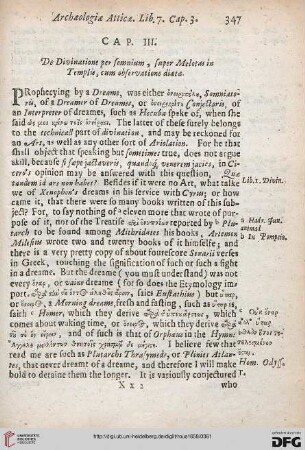 Archaeologiæ Atticæ. Lib. 7. Cap. 3. 347
CAP. III.
De Divinatione per somnium, super Melotas in
Templis, cum observatione diatæ.
PRophecying by a Dreame, was either Somniato-
ris, of a Dreamer of Dreames, or Conjectoris, of
an Interpreter of dreames, such as Hecuba speake of, when she
said The latter of these surely belongs
to the technicall part of divination, and may be reckoned for
an Art, as well as any other sort of Ariolation. For he that
shall object that speaking but sometimes true, does not argue
skill, because si sæpe jactaveris, quandoque venerem jacies, in Ci-
cero's opinion may be answered with this question, Quæ
tandem id ars non habet? Besides if it were no Art, what talke
we of Xenophon's dreames in his service with Cyrus; or how
came it, that there were so many books written of this sub-
ject? For, to say nothing of eleven more that wrote of pur-
pose of it, nor of the Treatise reported by Plu-
tarch to be found among Mithridates his books, Artemon
Milesius wrote two and twenty books of it himselfe; and
there is a very pretty copy of about fourescore Senarii verses
in Greek, touching the signification of such or such a sight
in a dreame. But the dreame (you must understand) was not
every ὄναρ, or vaine dreame (for so does the Etymology im-
port, saies Eustathius) but ὕπαρ,
or a Morning dreame, fresh and fasting, such as ὕπαρ is,
saith Homer, which they derive which
comes about waking time, or which they derive
and such is that of Orpheus in the Hymne
I believe few that
read me are such as Plutarchs Thrasymede, or Plinies Atlan-
tes, that never dreamt of a dreame, and therefore I will make
bold to detaine them the longer. It is variously conjectured
Xx 2 who
Lib. 1. Divin.
in Pompeio.
Hom. Odyss.
http://digi.ub.uni-heidelberg.de/diglit/rous1658/0361
© Universitätsbibliothek Heidelberg
gefördert durch die
DFG